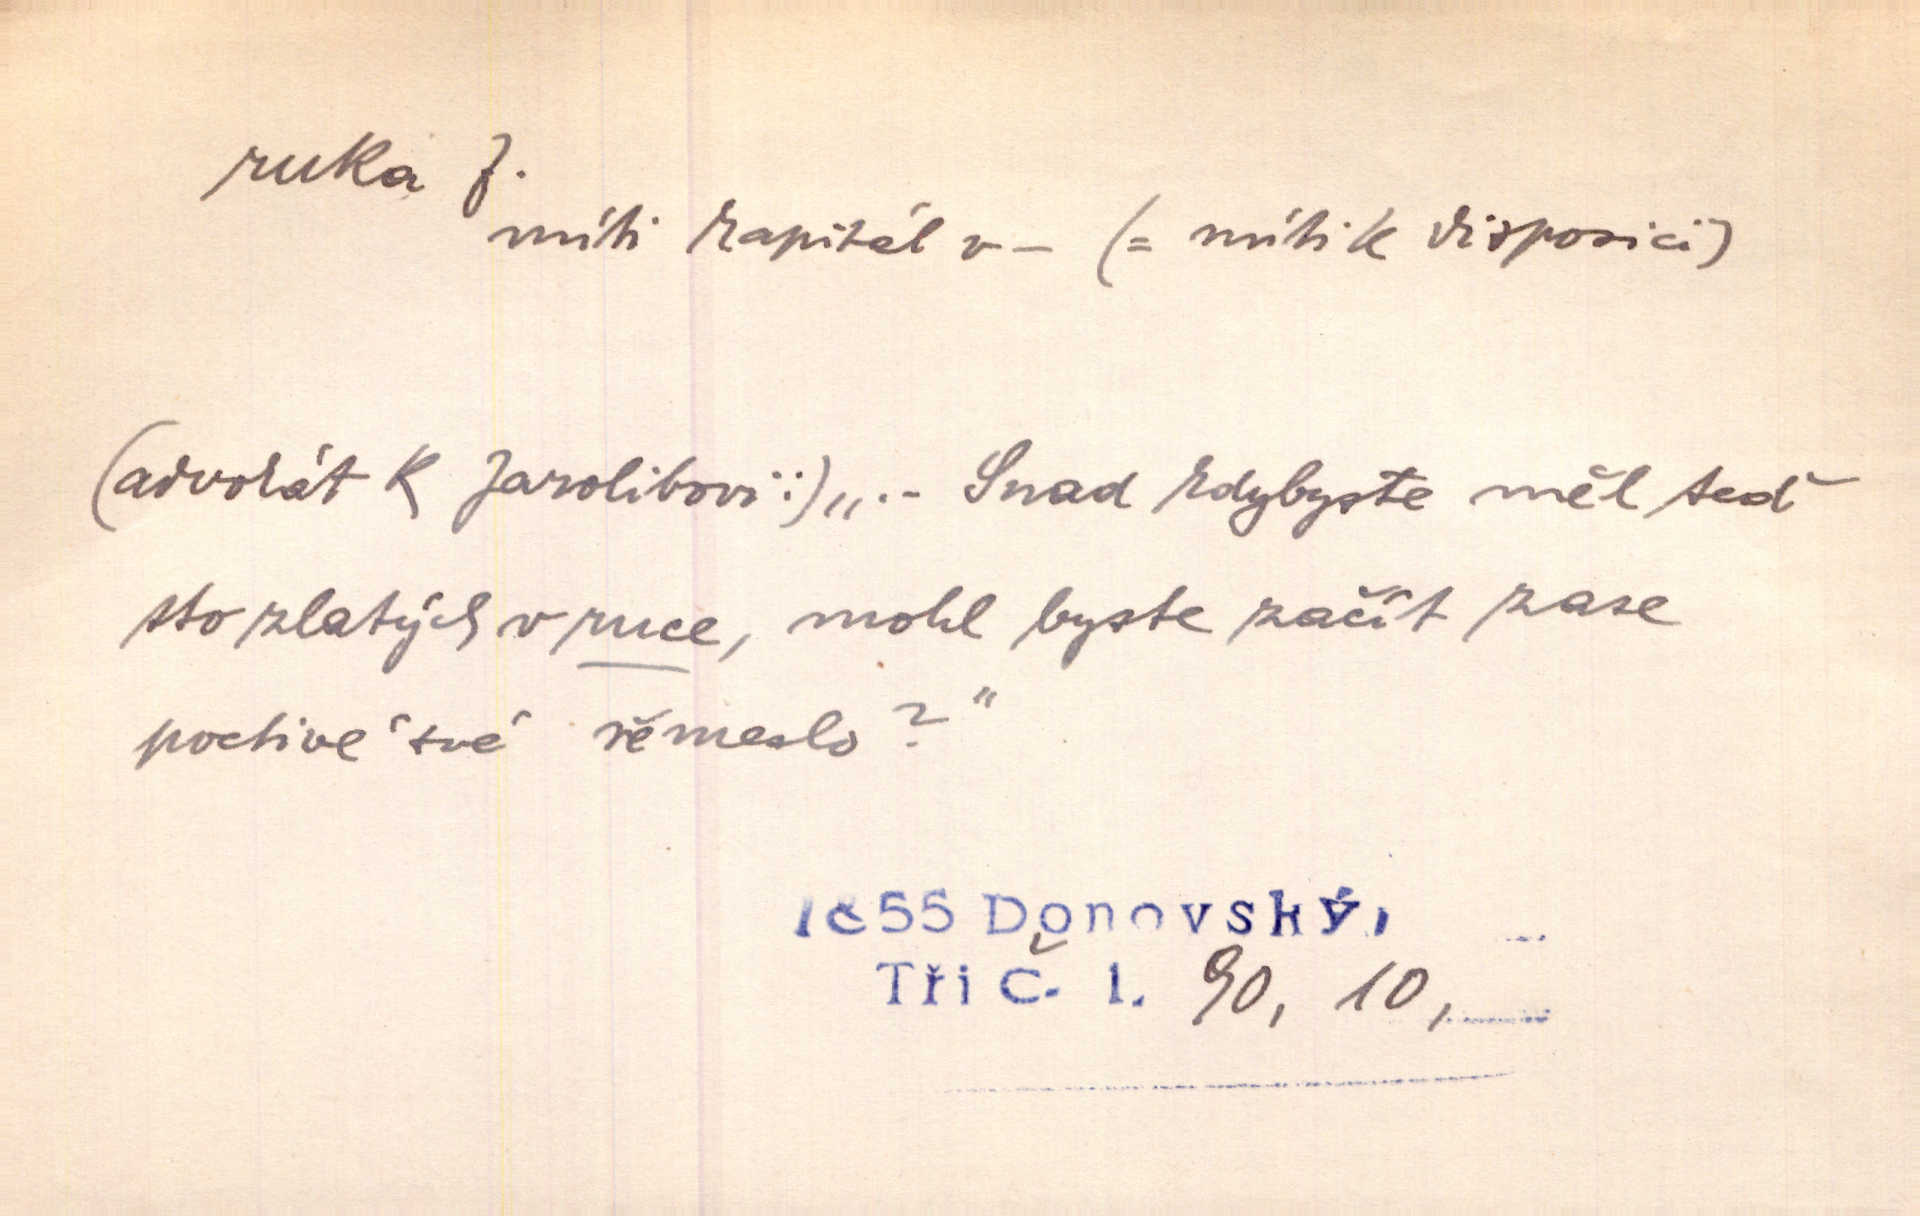 ruka f.
míti kapitál v – (= míti k disposici)
(advokát k Jarolibovi:) „.. Snad kdybyste měl teď
sto zlatých v ruce, mohl byste začít zase
poctivé své řemeslo?"
1855 Donovský,
Tři č. 1. 90, 10,